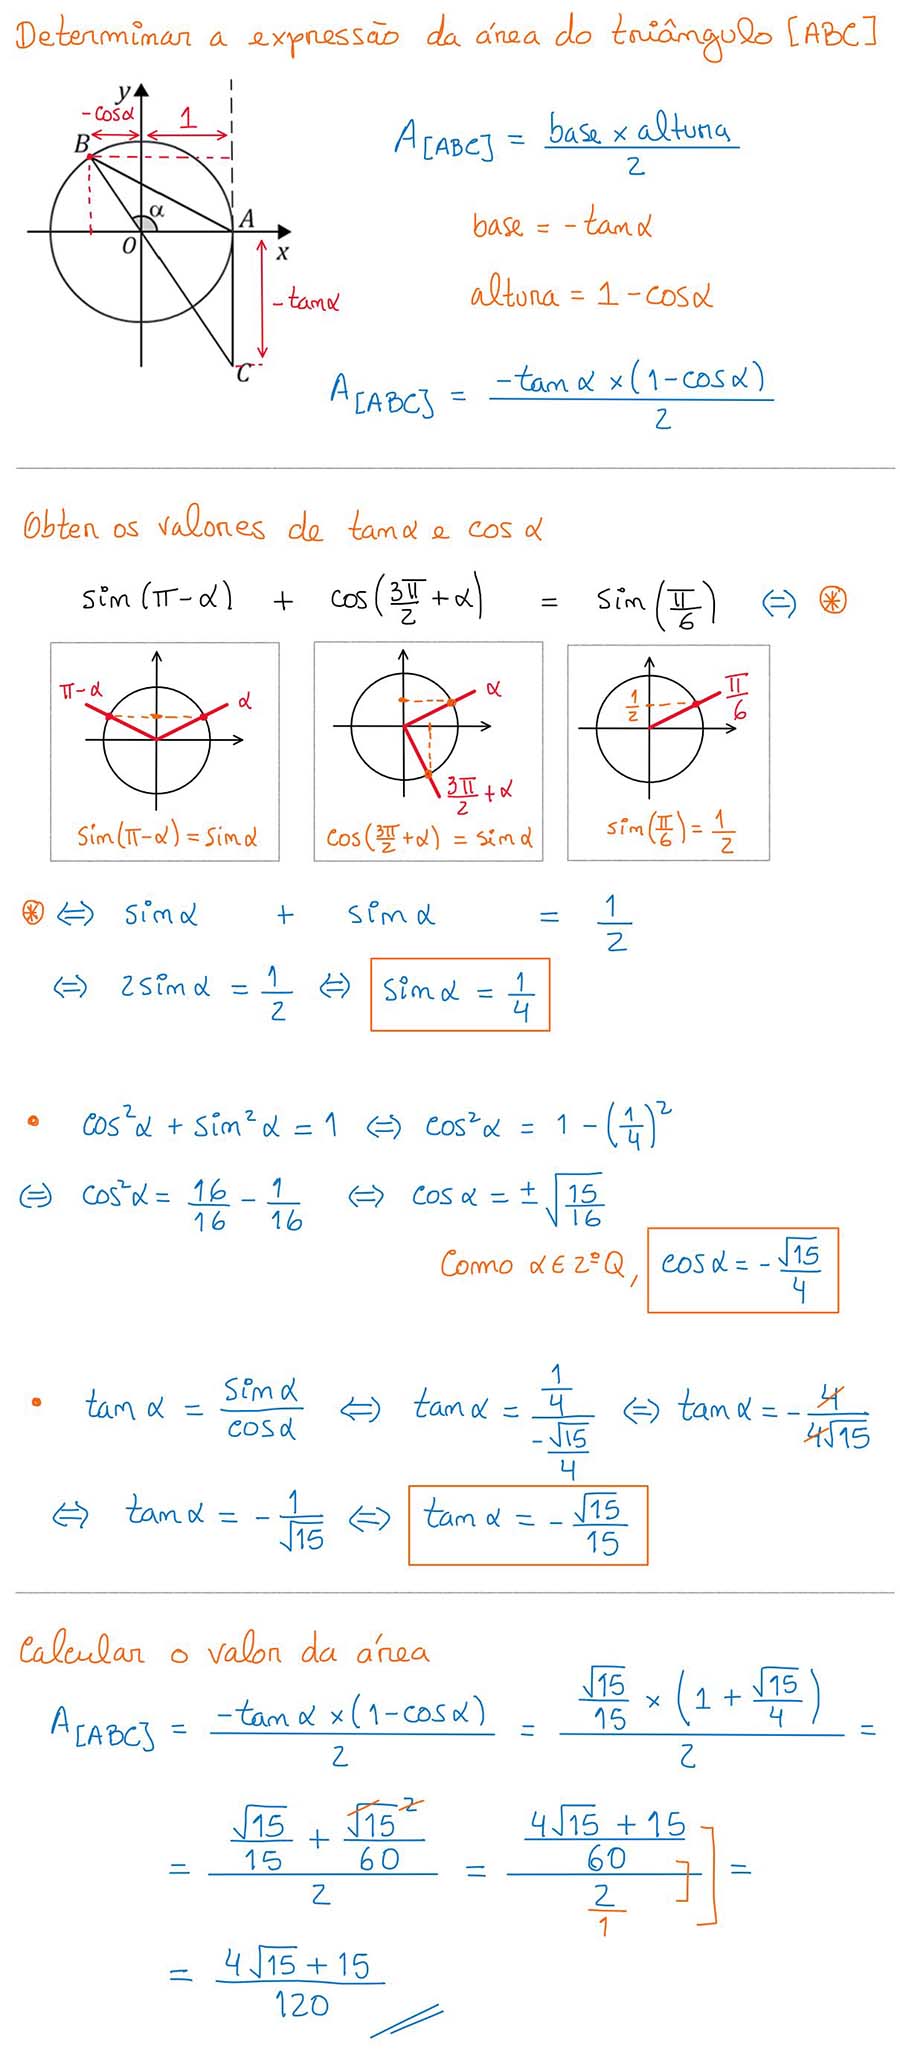 Determinar a expressão da área do triângulo [ABC]
y
-cosα
1
B
α
A
O
x
-tanα
C
A[ABC] = (base × altura)/2
base = -tanα
altura = 1-cosα
A[ABC] = (-tanα×(1-cosα))/2
Obter os valores de tanα e cosα
sin(π-α) + cos(3π/2 + α) = sin(π/6) ⇔ ⊛
π-α
α
sin(π-α)=sinα
α
3π/2 + α
cos(3π/2+α) = sinα
1/2
π/6
sin(π/6)=1/2
⊛ ⇔ sinα + sinα = 1/2
⇔ 2sinα = 1/2 ⇔ sinα = 1/4
• cos²α + sin²α = 1 ⇔ cos²α = 1-(1/4)²
⇔ cos²α = 16/16 - 1/16 ⇔ cosα = ±√(15/16)
Como α∈2ºQ, cosα = -√15/4
• tanα = sinα/cosα ⇔ tanα = (1/4)/(-√15/4) ⇔ tanα = -4/(4√15)
⇔ tanα = -1/√15 ⇔ tanα = -√15/15
Calcular o valor da área
A[ABC] = (-tanα×(1-cosα))/2 = (√15/15 × (1 + √15/4))/2 =
= (√15/15 + √15²/60)/2 = ((4√15 + 15)/60)/(2/1) =
= (4√15 + 15)/120